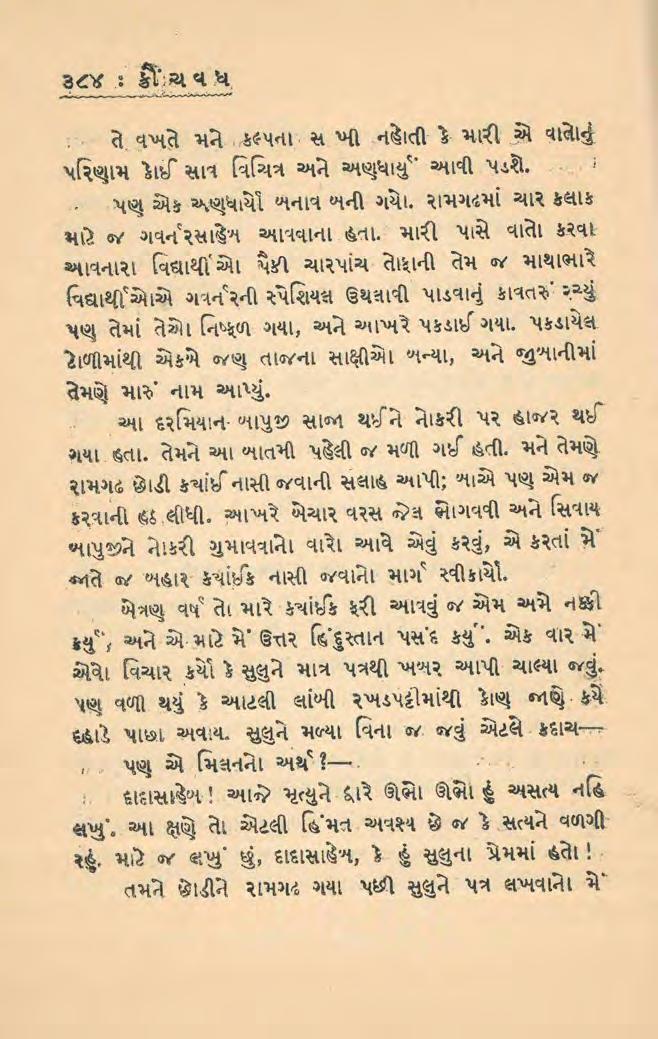 ૩૮૪ : ક્રૌંચવધ
તે વખતે મને કલ્પના સ ખી નહોતી કે મારી એ વાતોનું
પરિણામ કોઈ સાવ વિચિત્ર અને અણધાર્યું આવી પડશે.
પણ એક અણધાર્યો બનાવ બની ગયો. રામગઢમાં ચાર કલાક
માટે જ ગવર્નરસાહેબ આવવાના હતા. મારી પાસે વાતો કરવા
આવનારા વિદ્યાર્થીઓ પૈકી ચારપાંચ તોફાની તેમ જ માથાભારે
વિદ્યાર્થીઓએ ગવર્નરની સ્પેશિયલ ઉથલાવી પાડવાનું કાવતરું રચ્યું
પણ તેમાં તેઓ નિષ્ફળ ગયા, અને આખરે પકડાઈ ગયા. પકડાયેલ
ટોળીમાંથી એકબે જણ તાજના સાક્ષીઓ બન્યા, અને જુબાનીમાં
તેમણે મારું નામ આપ્યું.
આ દરમિયાન બાપુજી સાજા થઈને નોકરી પર હાજર થઈ
ગયા હતા. તેમને આ બાતમી પહેલી જ મળી ગઈ હતી. મને તેમણે
રામગઢ છોડી કયાંઈ નાસી જવાની સલાહ આપી; બાએ પણ એમ જ
કરવાની હઠ લીધી. આખરે બેચાર વરસ જેલ ભોગવવી અને સિવાય
બાપુજીને નોકરી ગુમાવવાનો વારો આવે એવું કરવું, એ કરતાં મેં
જાતે જ બહાર કયાંઈક નાસી જવાનો માર્ગ સ્વીકાર્યો.
બેત્રણ વર્ષ તો મારે કયાંઈક ફરી આવવું જ એમ અમે નક્કી
કર્યું, અને એ માટે મેં ઉત્તર હિંદુસ્તાન પસંદ કર્યું. એક વાર મેં
એવો વિચાર કર્યો કે સુલુને માત્ર પત્રથી ખબર આપી ચાલ્યા જવું.
પણ વળી થયું કે આટલી લાંબી રખડપટ્ટીમાંથી કોણ જાણે કયે
દહાડે પાછા અવાય. સુલુને મળ્યા વિના જ જવું એટલે કદાચ—
પણ એ મિલનનો અર્થ ?—.
દાદાસાહેબ ! આજે મૃત્યુને દ્વારે ઊભો ઊભો હું અસત્ય નહિ
લખું. આ ક્ષણે તો એટલી હિંમત અવશ્ય છે જ કે સત્યને વળગી
રહું. માટે જ લખું છું, દાદાસાહેબ, કે હું સુલુના પ્રેમમાં હતો !
તમને છોડીને રામગઢ ગયા પછી સુલુને પત્ર લખવાનો મેં